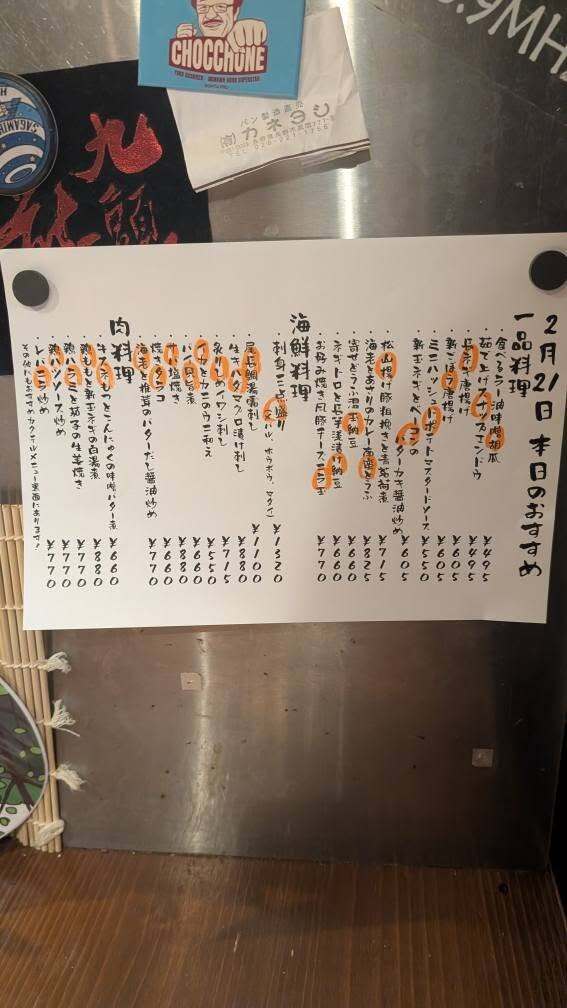 CHOCCHONE
パン製造直売
(有)カネヨシ
九
5.9MHz
2月21日 本日のおすすめ
一品料理
・食べるラー油味噌胡瓜 ¥495
・茹で上げスナップエンドウ ¥495
・長ネギ唐揚げ
・新ごぼう唐揚げ ¥605
・ミニハッシュドポテトマスタードソース ¥550
・新玉ネギとベーコンの
バターカキ醤油炒め ¥605
・松山揚げ豚粗挽きと青菜荷煮 ¥715
・海老とあさりのカレー南蛮とうふ ¥825
・寄せどうふ温玉納豆 ¥660
・ネギトロと長芋浅漬け納豆
・お好み焼き風豚チーズニラ玉 ¥770
海鮮料理
・刺身三点盛り(スバル、ホウボウ、マダイ) ¥1320
・尾長鯛湯霜刺し ¥1100
・生キハダマグロ漬け刺し ¥880
・炙りしめイワシ刺し ¥715
・ウドとカニのカニ和え
・パン貝旨煮
・サバ塩焼き
・焼きタラコ
・海老と椎茸のバターだし醤油炒め ¥770
肉料理
・牛スネもつとこんにゃくの味噌バター煮 ¥660
・鶏ももと新玉ネギの白湯煮 ¥880
・鶏ハラミと茄子の生姜焼き ¥770
・鶏ハツソース炒め ¥770
・レバニラ炒め ¥770
その他にもおすすめカクテルメニュー裏面にあります!